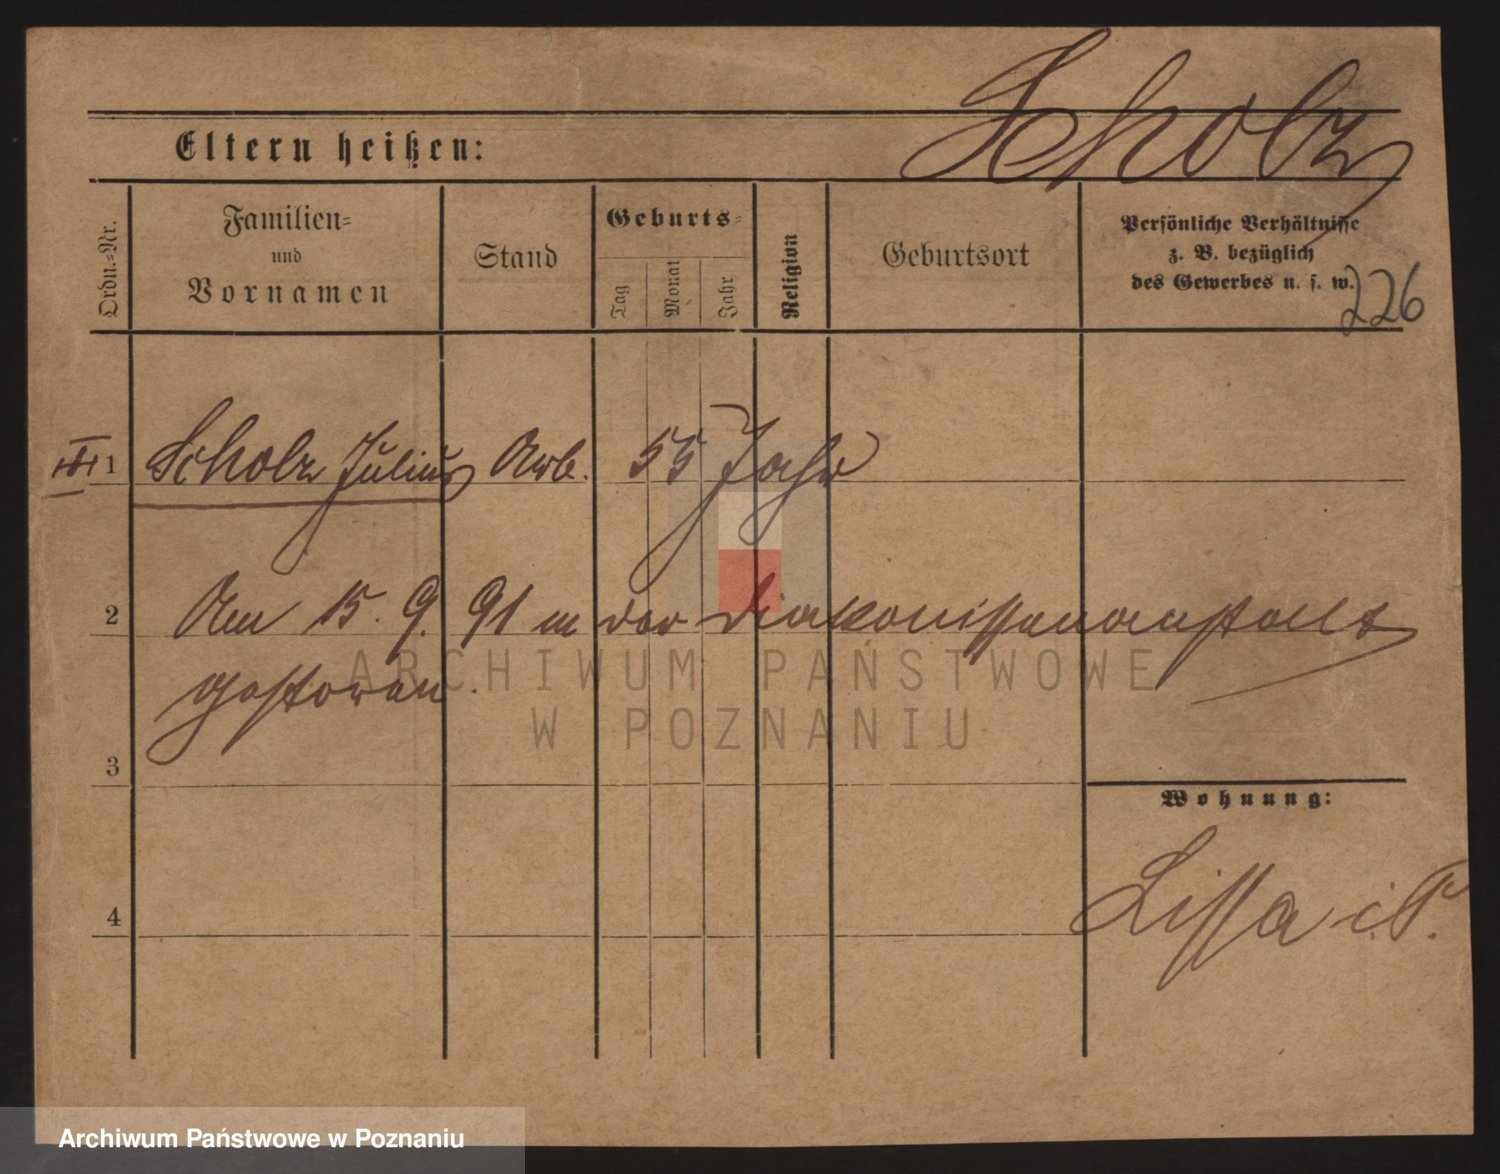 Scholz
Eltern heißen:
Ordn.-Nr.
Familien-
und
Vornamen
Stand
Geburts-
Tag
Monat
Jahr
Religion
Geburtsort
Persönliche Verhältnisse
z. B. bezüglich
des Gewerbes u. s. w.
226
1 Scholz Julius Arb. 55 Jahr
2 Am 15. 9. 91 in der Diakonissenanstalt
gestorben.
ARCHIWUM PAŃSTWOWE
W POZNANIU
3
Wohnung:
Lissa i. P.
4
Archiwum Państwowe w Poznaniu